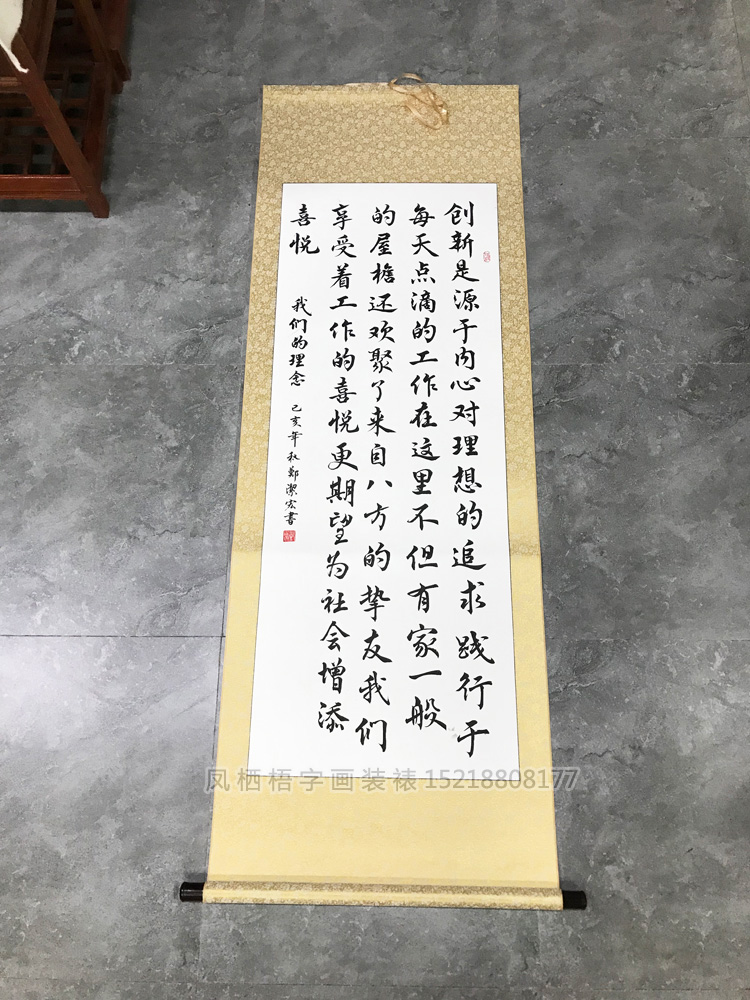 创新是源于内心对理想的追求践行于
每天点滴的工作在这里不但有家一般
的屋檐还欢聚了来自八方的挚友我们
享受着工作的喜悦更期望为社会增添
喜悦
我们的理念
己亥年秋郑潔宏書
凤栖梧字画装裱15218808177